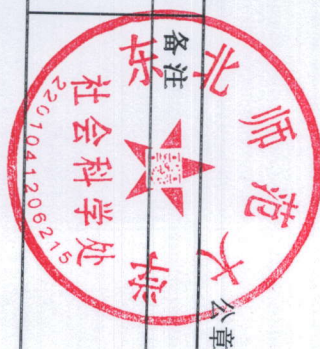 东北师范大学
社会科学处
2201041206215
备注
公章